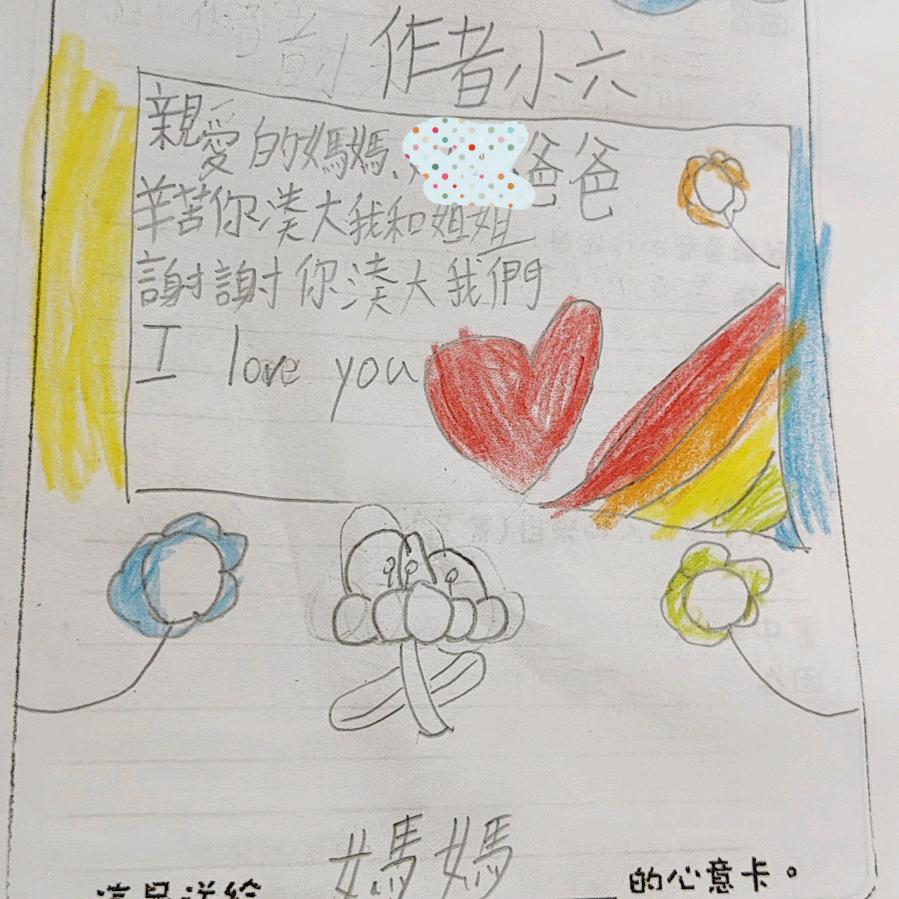 作者小六
親愛的媽媽、爸爸
辛苦你湊大我和姐姐
謝謝你湊大我們
I love you
媽媽
這是送給 的心意卡。